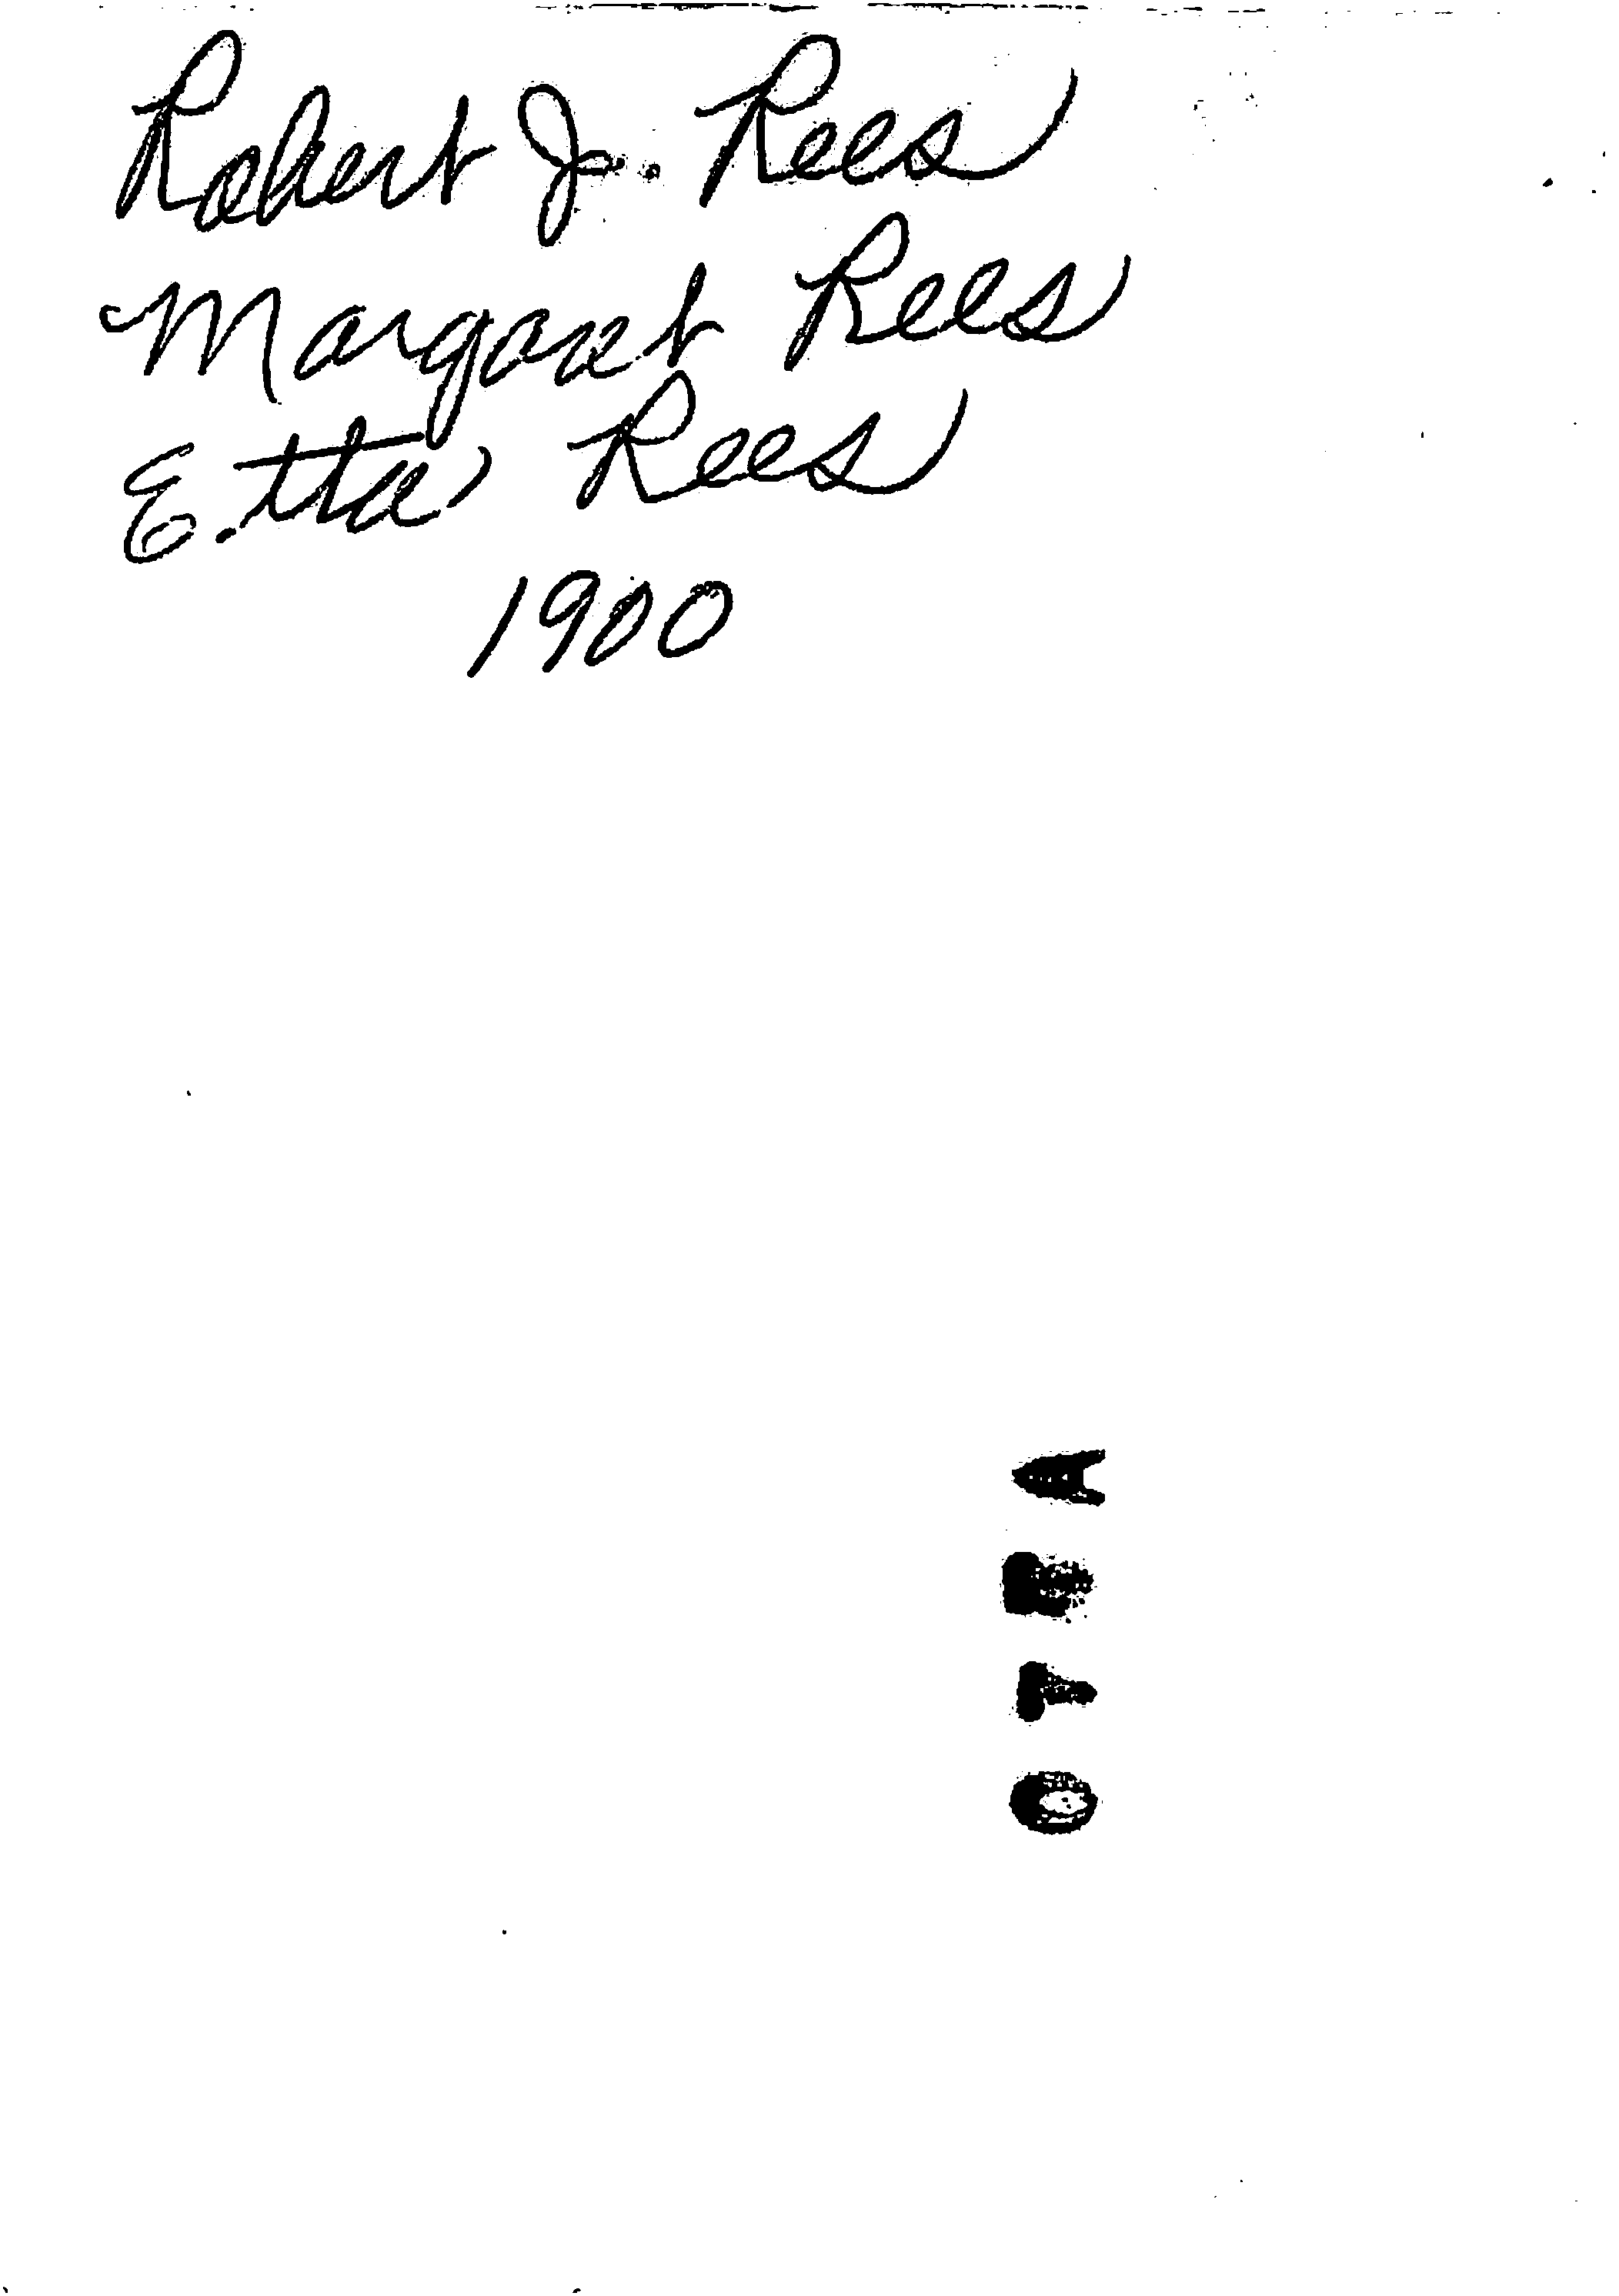 Robert J. Rees
Margaret Rees
Etta Rees
1900